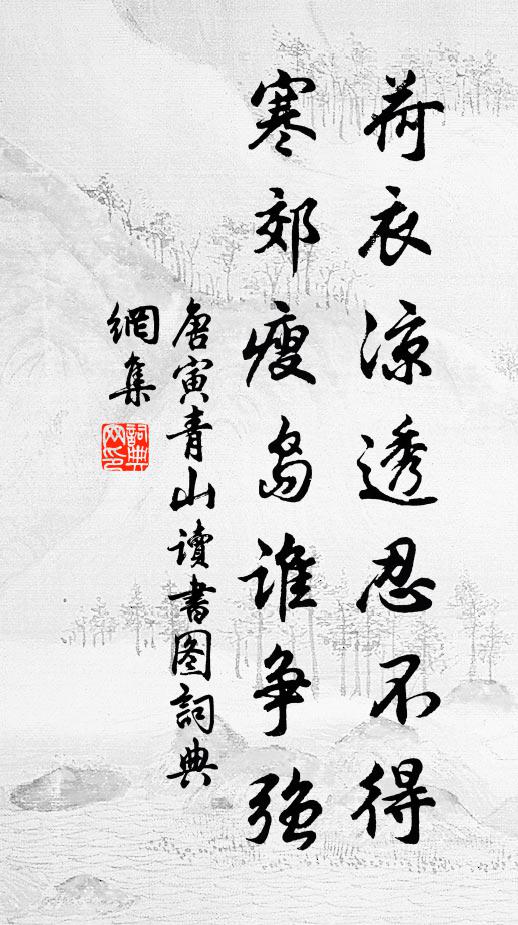 荷衣凉透忍不得
寒郊瘦岛谁争强
唐寅青山读书图词典
網集
詞典
网印